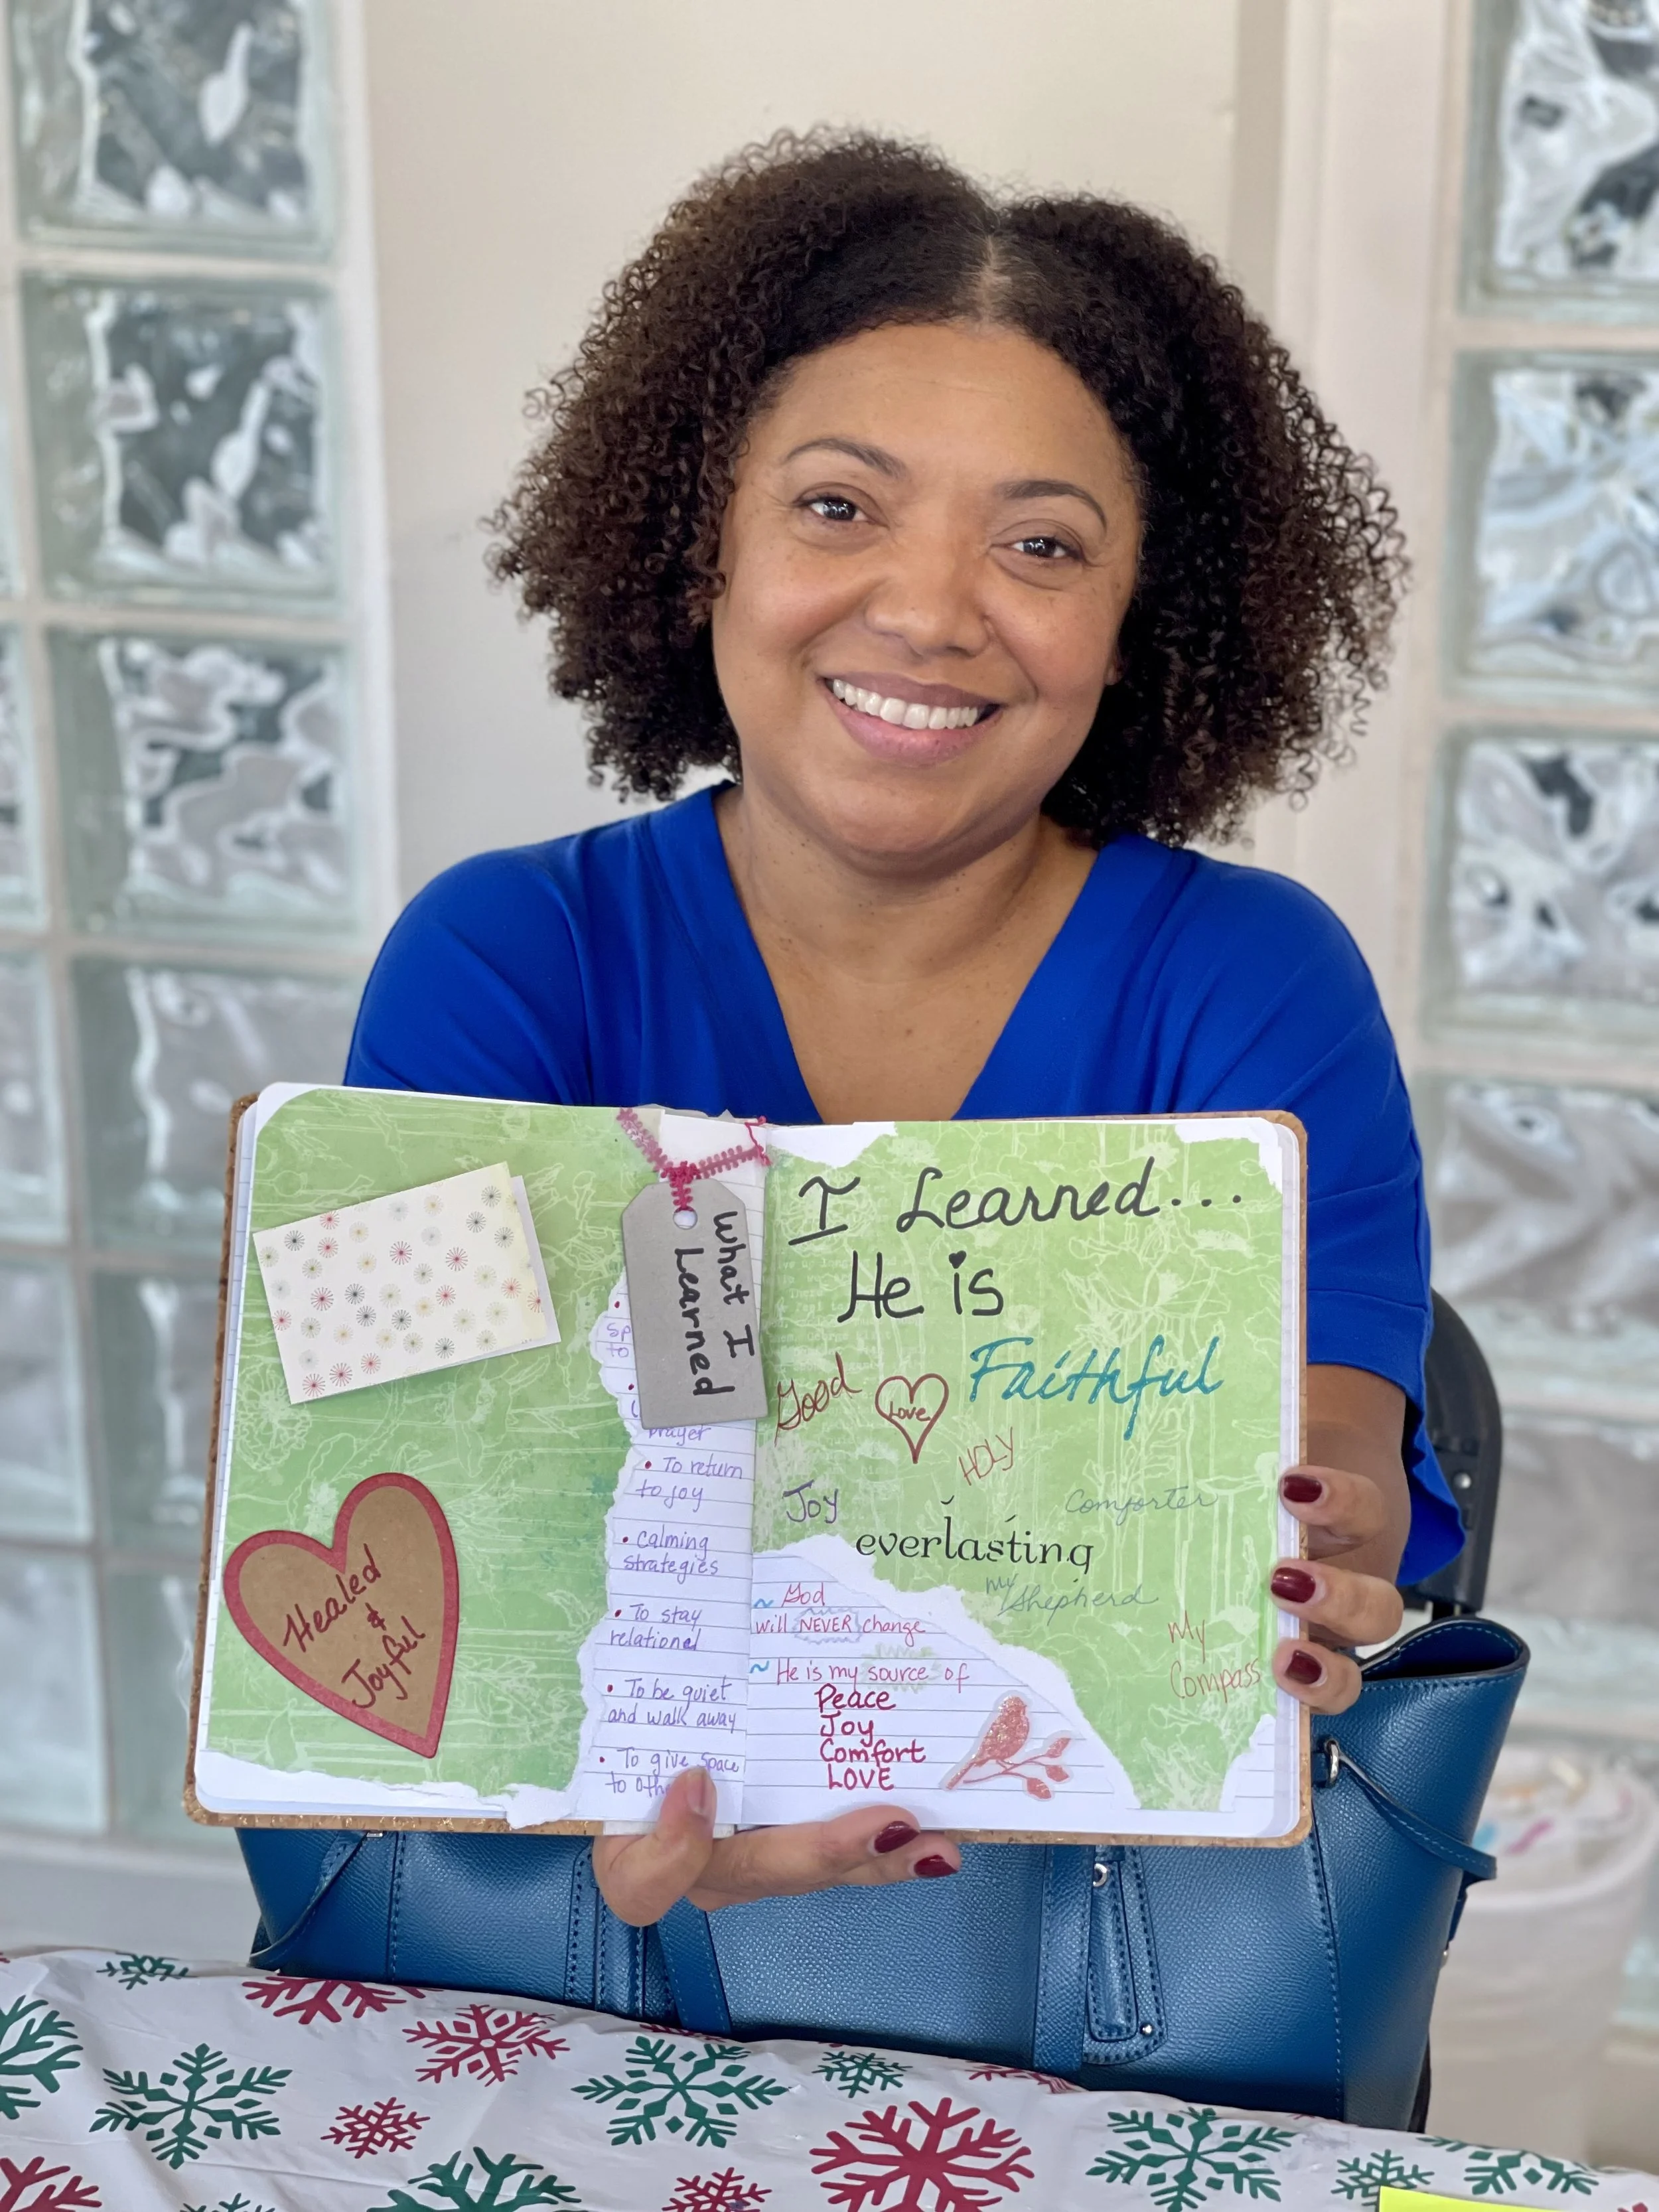 Healed
&
Joyful
What I
Learned
sp
to
prayer
• To return
to joy
• calming
strategies
• To stay
relational
• To be quiet
and walk away
• To give space
to othe
I Learned...
He is
Faithful
Good
Love
HOLY
Joy
Comforter
everlasting
my Shepherd
My
Compass
~ God
will NEVER change
~ He is my source of
Peace
Joy
Comfort
LOVE